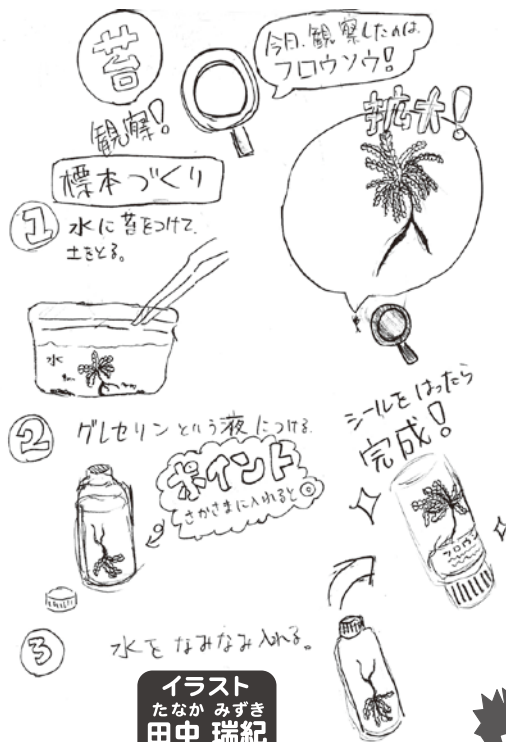 苔
観察!
今日、観察したのは、
フロウソウ!
拡大!
標本づくり
1 水に苔をつけて、
土をとる。
水
2 グレセリンという液につける。
ポイント
さかさまに入れると◎
シールをはったら
完成!
フロウソ
3 水をなみなみ入れる。
イラスト
たなか みずき
田中 瑞紀